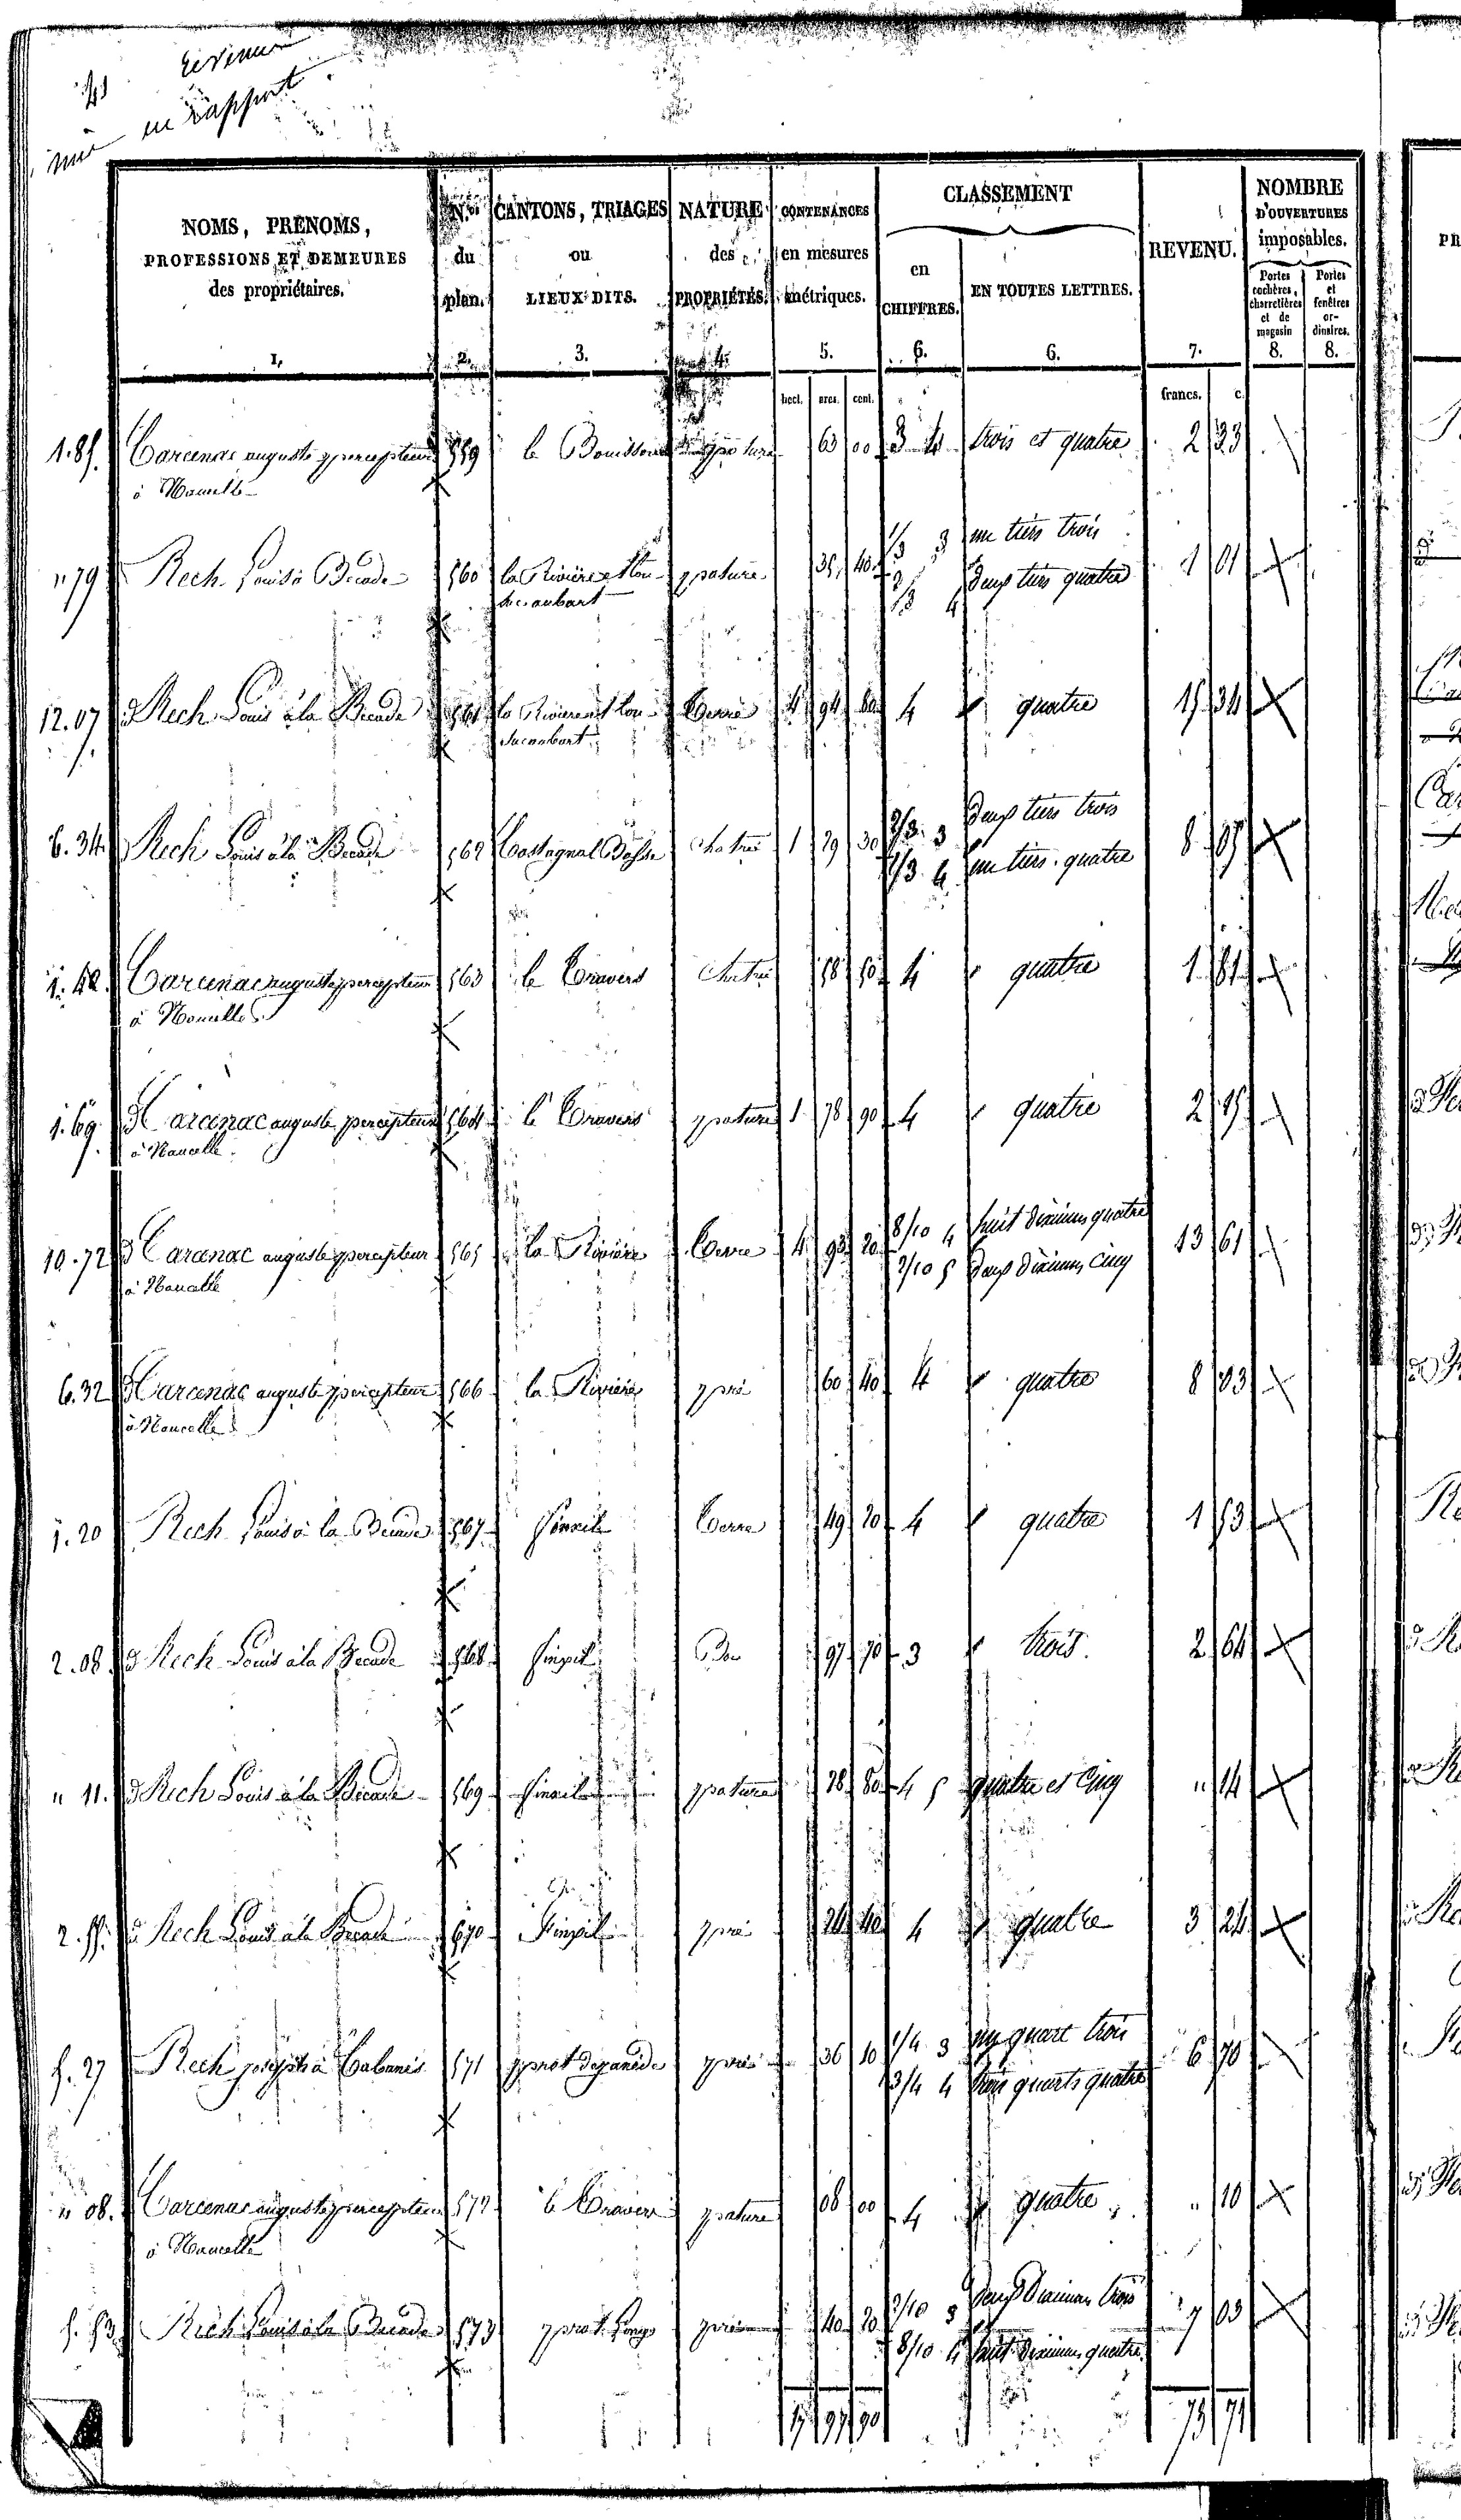 revenu
mis en rapport
NOMS, PRÉNOMS,
PROFESSIONS ET DEMEURES
des propriétaires.
1.
N.os
du
plan.
2.
CANTONS, TRIAGES
ou
LIEUX DITS.
3.
NATURE
des
PROPRIÉTÉS.
4.
CONTENANCES
en mesures
métriques.
5.
CLASSEMENT
en
CHIFFRES.
6.
EN TOUTES LETTRES.
6.
REVENU.
7.
NOMBRE
D'OUVERTURES
imposables.
Portes
cochères,
charretières
et de
magasin
8.
Portes
et
fenêtres
or-
dinaires.
8.
hect. ares. cent. francs. c.
1.85. Carcenac auguste percepteur 559 le Bouissou pature 63 00 3 4 trois et quatre 2 33
à Naucelle
" 79 Rech Louis à Becade 560 la Rivière et pature 40 1/3 3 un tiers trois 1 01
2/3 4 deux tiers quatre
12.07 Rech Louis à la Becade 561 la Rivière et Terre 4 94 80 4 quatre 15 34
6.34 Rech Louis à la Becade 562 Castagnal Chatrie 1 29 30 2/3 3 deux tiers trois 8
1/3 4 un tiers quatre
1.42 Carcenac auguste percepteur 563 le Travers 58 50 4 quatre 1 81
à Naucelle
1.69 Carcenac auguste percepteur 564 le Travers pature 1 78 90 4 quatre 2 15
à Naucelle
10.72 Carcenac auguste percepteur 565 la Rivière Terre 4 20 8/10 4 huit dixièmes quatre 13 61
2/10 5 deux dixièmes cinq
à Naucelle
6.32 Carcenac auguste percepteur 566 la Rivière pré 60 40 4 quatre 8 03
à Naucelle
1.20 Rech Louis à la Becade 567 Terre 49 20 4 quatre 1 53
2.08 Rech Louis à la Becade 568 Bois 97 70 3 trois 2 64
" 11. Rech Louis à la Becade 569 pature 28 80 4 5 quatre et cinq " 14
2.55. Rech Louis à la Becade 570 pré 24 40 4 quatre 3 24
5.27 Rech joseph à Cabanis 571 pré 36 10 1/4 3 un quart trois 6 70
3/4 4 trois quarts quatre
" 08. Carcenac auguste percepteur 572 le Travers pature 08 00 4 quatre " 10
à Naucelle
5.53 Rech Louis à la Becade 573 prat pré 40 20 2/10 3 deux dixièmes trois 7 03
8/10 4 huit dixièmes quatre